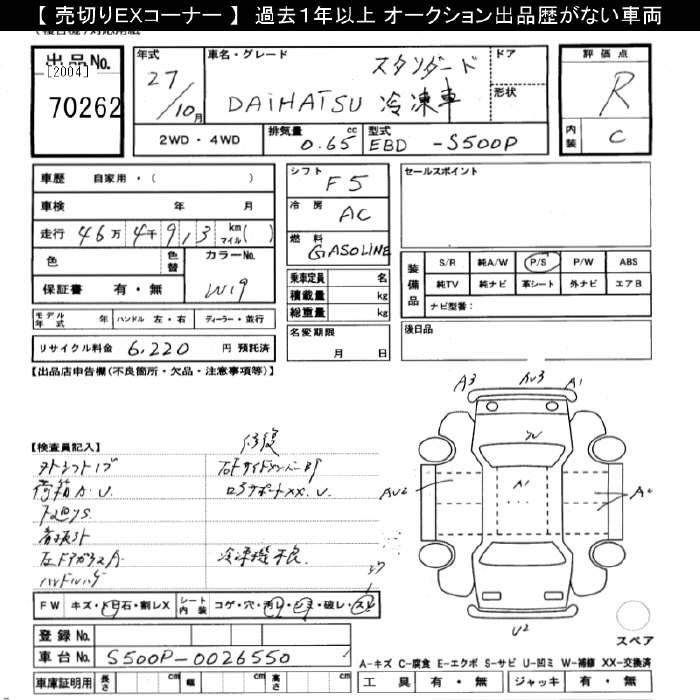 【 売切りEXコーナー 】 過去１年以上 オークション出品歴がない車両
出品No.
[2004]
70262
年式 27/10月
車名・グレード スタンダード
DAIHATSU 冷凍車
ドア
形状
評価点 R
内装 C
2WD・4WD
排気量 0.65 cc
型式 EBD -S500P
車歴 自家用・( )
車検 年 月
走行 46万4千9,13 km マイル( )
色 色替
カラーNo. W19
保証書 有・無
モデル年式 年 ハンドル 左・右 ディーラー・並行
リサイクル料金 6,220 円 預託済
シフト F5
冷房 AC
燃料 GASOLINE
乗車定員 名
積載量 kg
総重量 kg
名変期限
月 日
セールスポイント
装備品
S/R 純A/W P/S P/W ABS
純TV 純ナビ 革シート 外ナビ エアB
ナビ型番:
後日品
【出品店申告欄(不良箇所・欠品・注意事項等)】
A3 AU3 A1
W
A1
AU2
U2
【検査員記入】
修復
荷箱A.U.
下廻りS
左ドアガラスA
冷凍機不良
FW キズ・トビ石・割レX シート内装 コゲ・穴・汚レ・シミ・破レ・スレ
登録No.
車台No. S500P-0026550
車庫証明用 長さ cm 幅 cm 高さ cm
スペア
A-キズ C-腐食 E-エクボ S-サビ U-凹ミ W-補修 XX-交換済
工具 有・無 ジャッキ 有・無